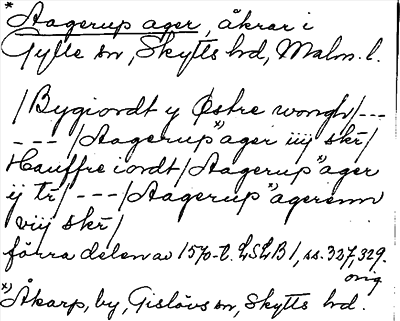 * Aagerup ager, åkrar i
Gylle sn, Skytts hd, Malm. l.
/Bygiordt y Østre wongh/---
---/Aagerup x) ager iiij skr/
Hauffre iordt/Aagerup "ager
ij tr/---/Aagerup "agerenn
viij skr/
förra delen av 1570-t. LSLB 1, ss. 327, 329.
orig.
x) Åkarp, by, Gislövs sn, Skytts hd.